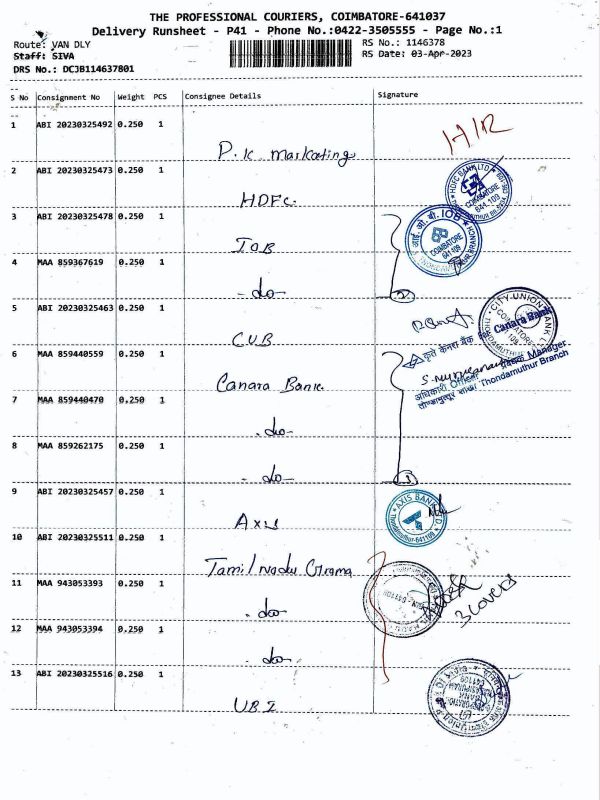 THE PROFESSIONAL COURIERS, COIMBATORE-641037
Delivery Runsheet - P41 - Phone No.:0422-3505555 - Page No.:1
Route: VAN DLY
RS No.: 1146378
Staff: SIVA
RS Date: 03-Apr-2023
DRS No.: DCJB114637801
S No Consignment No Weight PCS Consignee Details Signature
1 ABI 20230325492 0.250 1
P.K. Marketing
2 ABI 20230325473 0.250 1
HDFC.
HDFC BANK LTD
COIMBATORE
641 109
3 ABI 20230325478 0.250 1
IOB
आई. ओ. बी. IOB
COIMBATORE
641 109
4 MAA 859367619 0.250 1
- do -
2
5 ABI 20230325463 0.250 1
CUB
CITY UNION BANK
COIMBATORE
6 MAA 859440559 0.250 1
Canara Bank
Canara Bank
कृते केनरा बैंक For
Manager
अधिकारी Officer
Thondamuthur Branch
7 MAA 859440470 0.250 1
- do -
8 MAA 859262175 0.250 1
- do -
9 ABI 20230325457 0.250 1
Axis
AXIS BANK LTD
Thondamuthur-641109
10 ABI 20230325511 0.250 1
Tamil nadu Grama
11 MAA 943053393 0.250 1
- do -
3 covers
12 MAA 943053394 0.250 1
- do -
13 ABI 20230325516 0.250 1
UBI